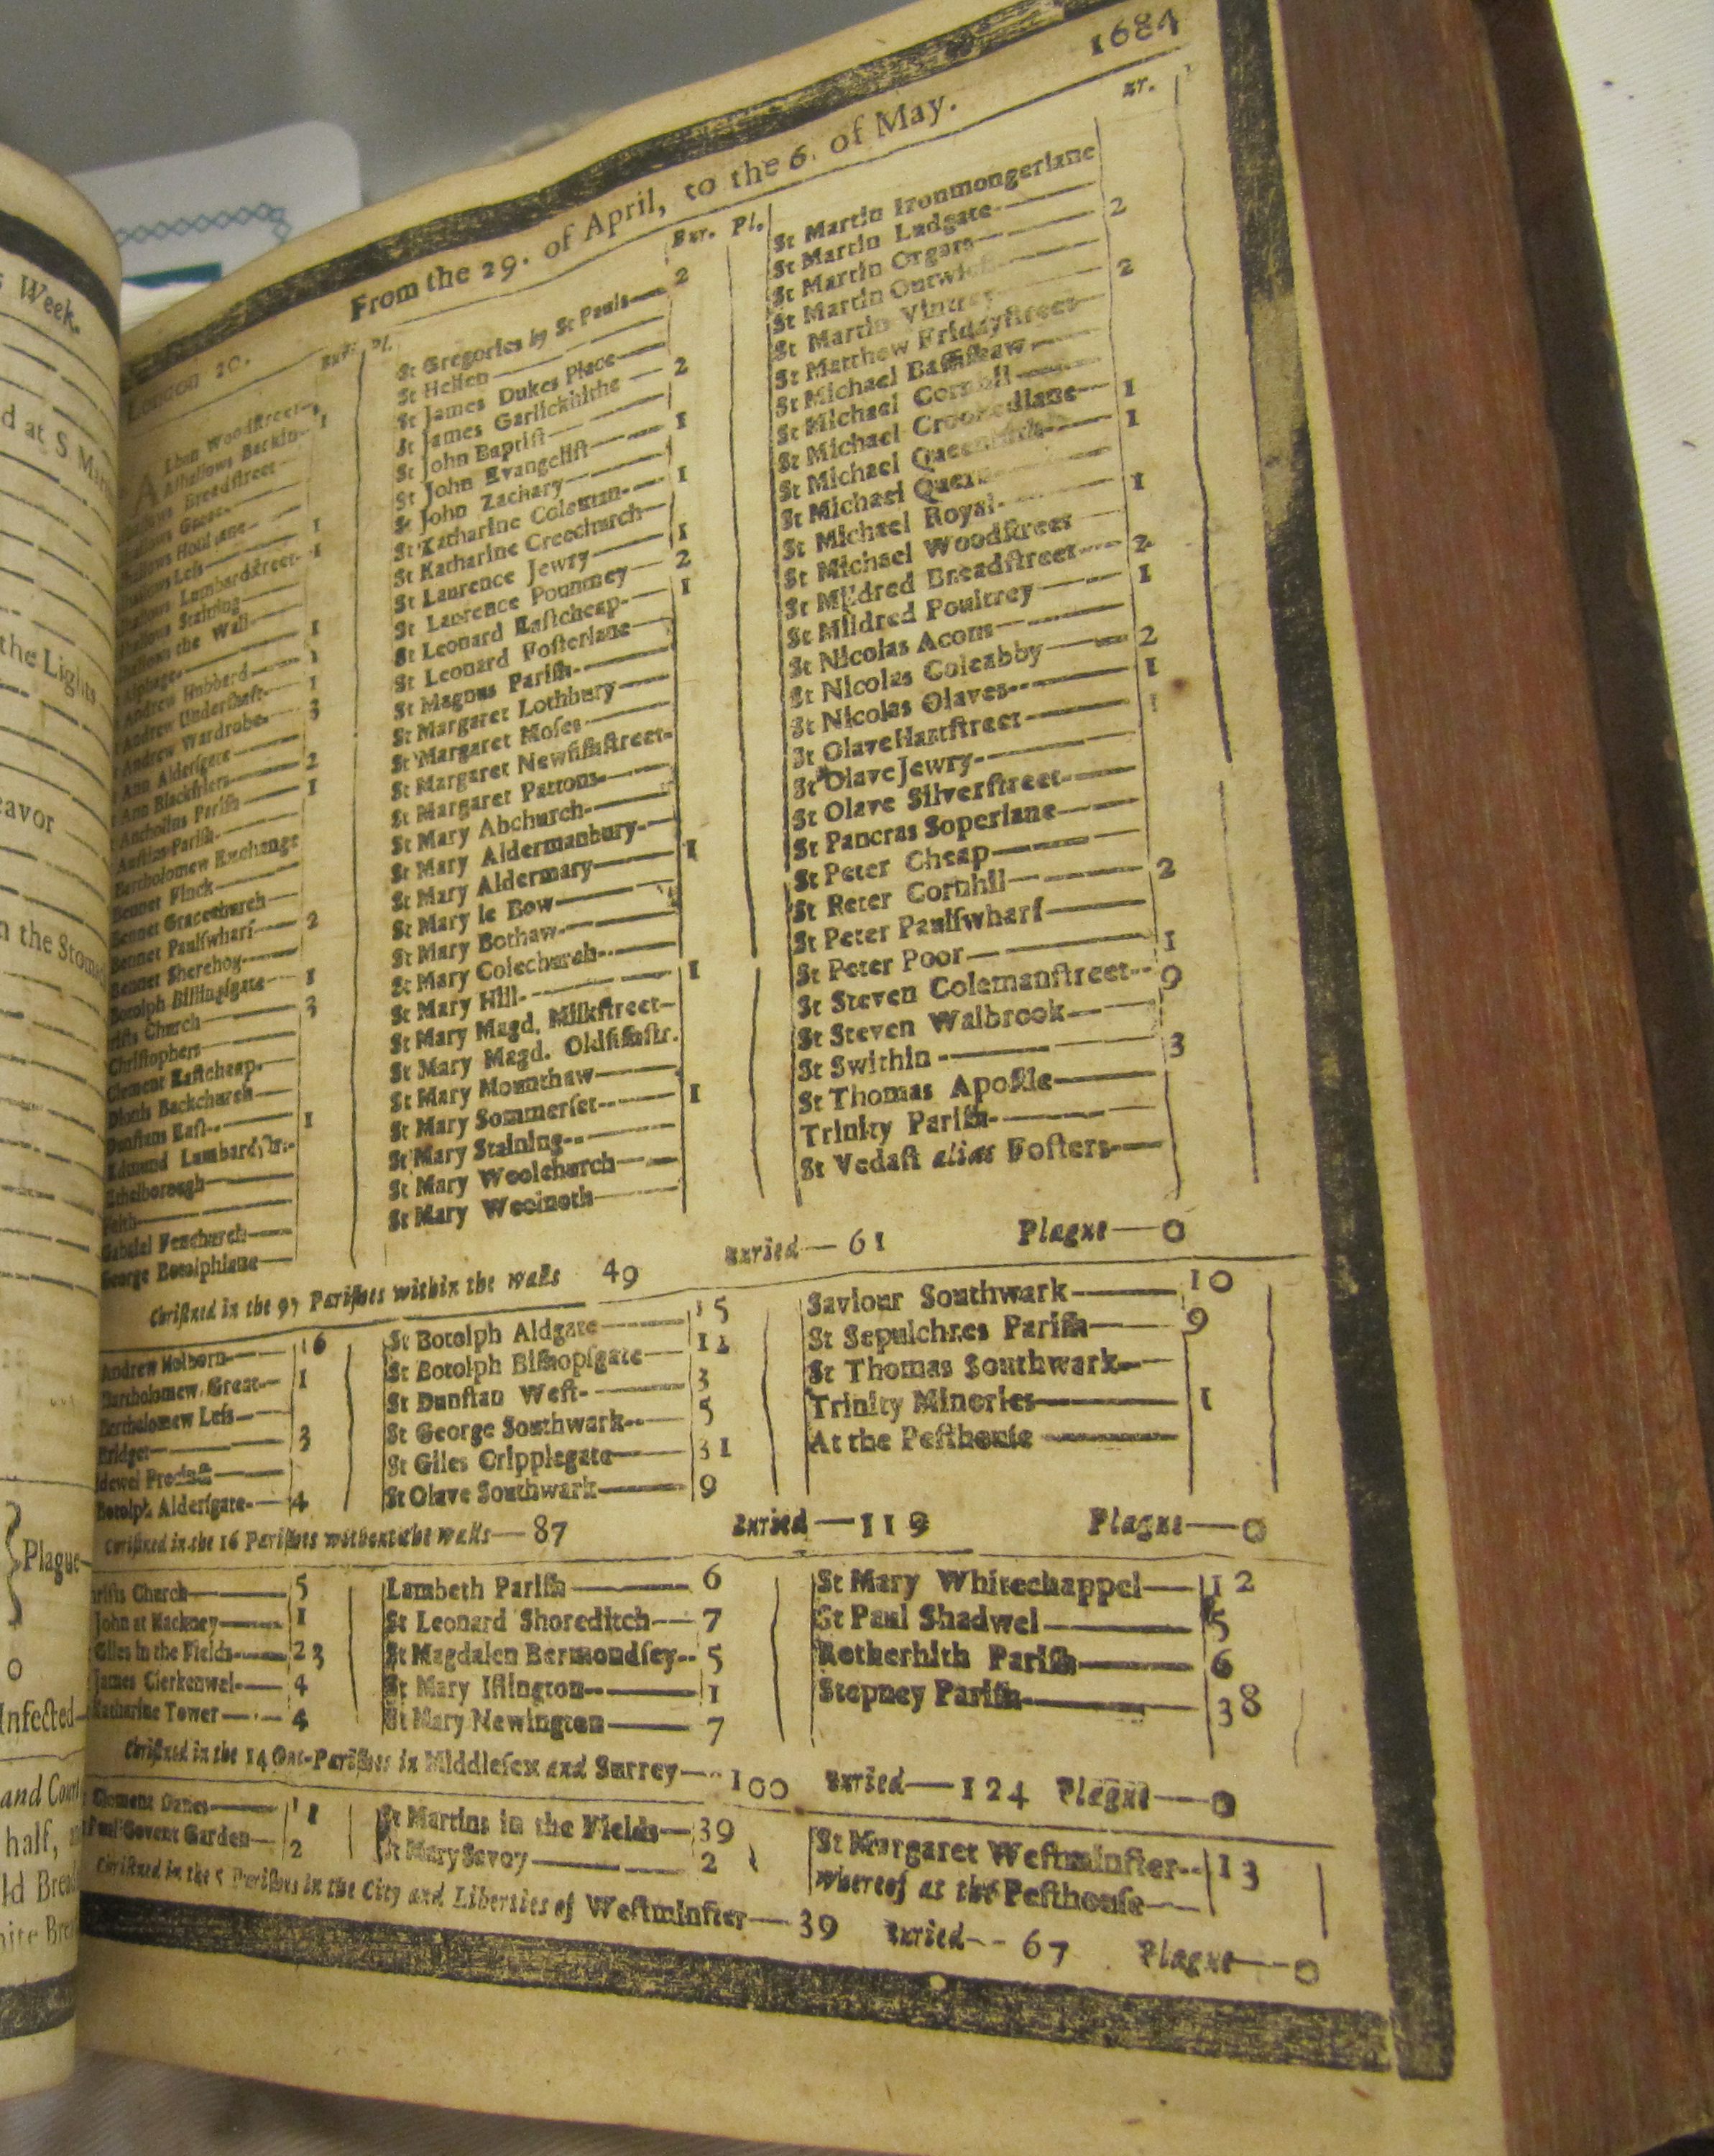 s Week.
d at S Mar
the Lights
eavor
n the Stoma
Plague
o
Infected
and Court
half,
ld Bread
ite Bread
1684
From the 29. of April, to the 6. of May.
London 20. Bur. Pl.
Alban Woodſtreet
Alhallows Barkin 1
Breadſtreet
Leſs 1
Lumbardſtreet 1
Staining
the Wall
Alphage 1
Andrew Hubbard 1
Andrew Underſhaft 1
Andrew Wardrobe 3
Ann Alderſgate
Ann Blackfriers 2
Antholins Pariſh 1
Auſtins Pariſh
Bartholomew Exchange
Bennet Finck
Bennet Gracechurch
Bennet Paulſwharf 2
Bennet Sherehog
Botolph Billingſgate 1
riſts Church 3
Chriſtophers
Clement Eaſtcheap
Dionis Backchurch
Dunſtans Eaſt 1
Edmund Lumbardſtr.
Ethelborough
Faith
Gabriel Fenchurch
George Botolphlane
Bur. Pl.
St Gregories by St Pauls 2
St Hellen
St James Dukes Place
St James Garlickhithe 2
St John Baptiſt
St John Evangeliſt 1
St John Zachary
St Katharine Coleman 1
St Katharine Creechurch
St Laurence Jewry 1
St Laurence Pountney 2
St Leonard Eaſtcheap 1
St Leonard Foſterlane
St Magnus Pariſh
St Margaret Lothbury
St Margaret Moſes
St Margaret Newfiſhſtreet
St Margaret Pattons
St Mary Abchurch
St Mary Aldermanbury
St Mary Aldermary 1
St Mary le Bow
St Mary Bothaw
St Mary Colechurch
St Mary Hill 1
St Mary Magd. Milkſtreet
St Mary Magd. Oldfiſhſtr.
St Mary Mounthaw
St Mary Sommerſet 1
St Mary Staining
St Mary Woolchurch
St Mary Woolnoth
ur.
St Martin Ironmongerlane
St Martin Ludgate
St Martin Orgars 2
St Martin Outwich
St Martin Vintrey 2
St Matthew Fridayſtreet
St Michael Baſſiſhaw
St Michael Cornhil
St Michael Crookedlane 1
St Michael Queenhith 1
St Michael Quern
St Michael Royal 1
St Michael Woodſtreet
St Mildred Breadſtreet 2
St Mildred Poultrey 1
St Nicolas Acons
St Nicolas Coleabby 2
St Nicolas Olaves 1
St Olave Hartſtreet 1
St Olave Jewry
St Olave Silverſtreet
St Pancras Soperlane
St Peter Cheap
St Peter Cornhil 2
St Peter Paulſwharf
St Peter Poor 1
St Steven Colemanſtreet 9
St Steven Walbrook
St Swithin 3
St Thomas Apoſtle
Trinity Pariſh
St Vedaſt alias Foſters
Chriſtned in the 97 Pariſhes within the walls 49 Buried — 61 Plague — 0
Andrew Holborn 16
Bartholomew Great 1
Bartholomew Leſs
Bridget 3
idewel Precinct
Botolph Alderſgate 4
St Botolph Aldgate 15
St Botolph Biſhopſgate 12
St Dunſtan Weſt 3
St George Southwark 5
St Giles Cripplegate 31
St Olave Southwark 9
Saviour Southwark 10
St Sepulchres Pariſh 9
St Thomas Southwark
Trinity Minories 1
At the Peſthouſe
Chriſtned in the 16 Pariſhes without the walls — 87 Buried — 119 Plague — 0
riſts Church 5
John at Hackney 1
Giles in the Fields 23
James Clerkenwel 4
Katharine Tower 4
Lambeth Pariſh 6
St Leonard Shoreditch 7
St Magdalen Bermondſey 5
St Mary Iſlington 1
St Mary Newington 7
St Mary Whitechappel 12
St Paul Shadwel 5
Rotherhith Pariſh 6
Stepney Pariſh 38
Chriſtned in the 14 Out-Pariſhes in Middleſex and Surrey — 100 Buried — 124 Plague — 0
Clement Danes 11
Paul Covent Garden 2
St Martins in the Fields 39
St Mary Savoy 2
St Margaret Weſtminſter 13
whereof at the Peſthouſe
Chriſtned in the 5 Pariſhes in the City and Liberties of Weſtminſter — 39 Buried — 67 Plague — 0